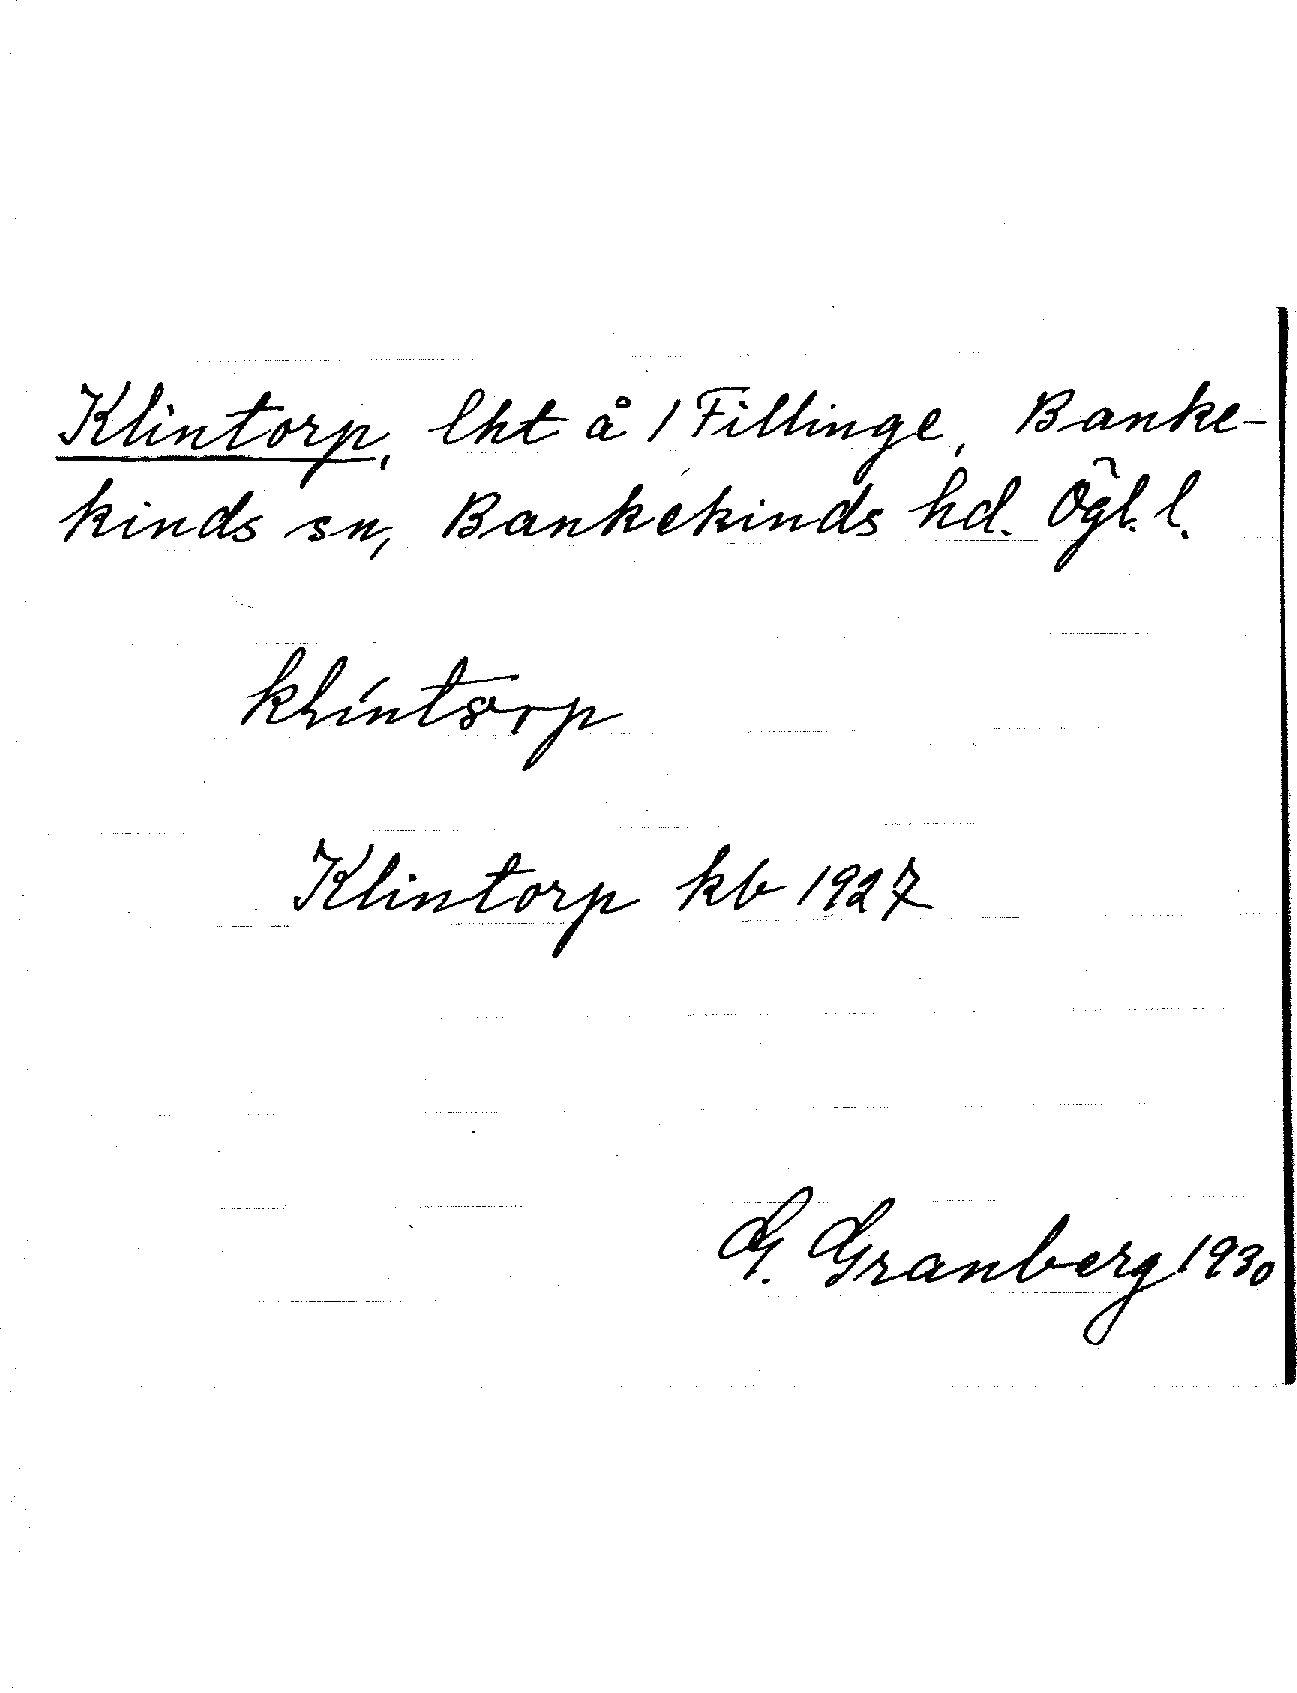 Klintorp, lht å 1 Fillinge, Banke-
kinds sn, Bankekinds hd. Ögl. l.
Klintorp kb 1927
G. Granberg 1930